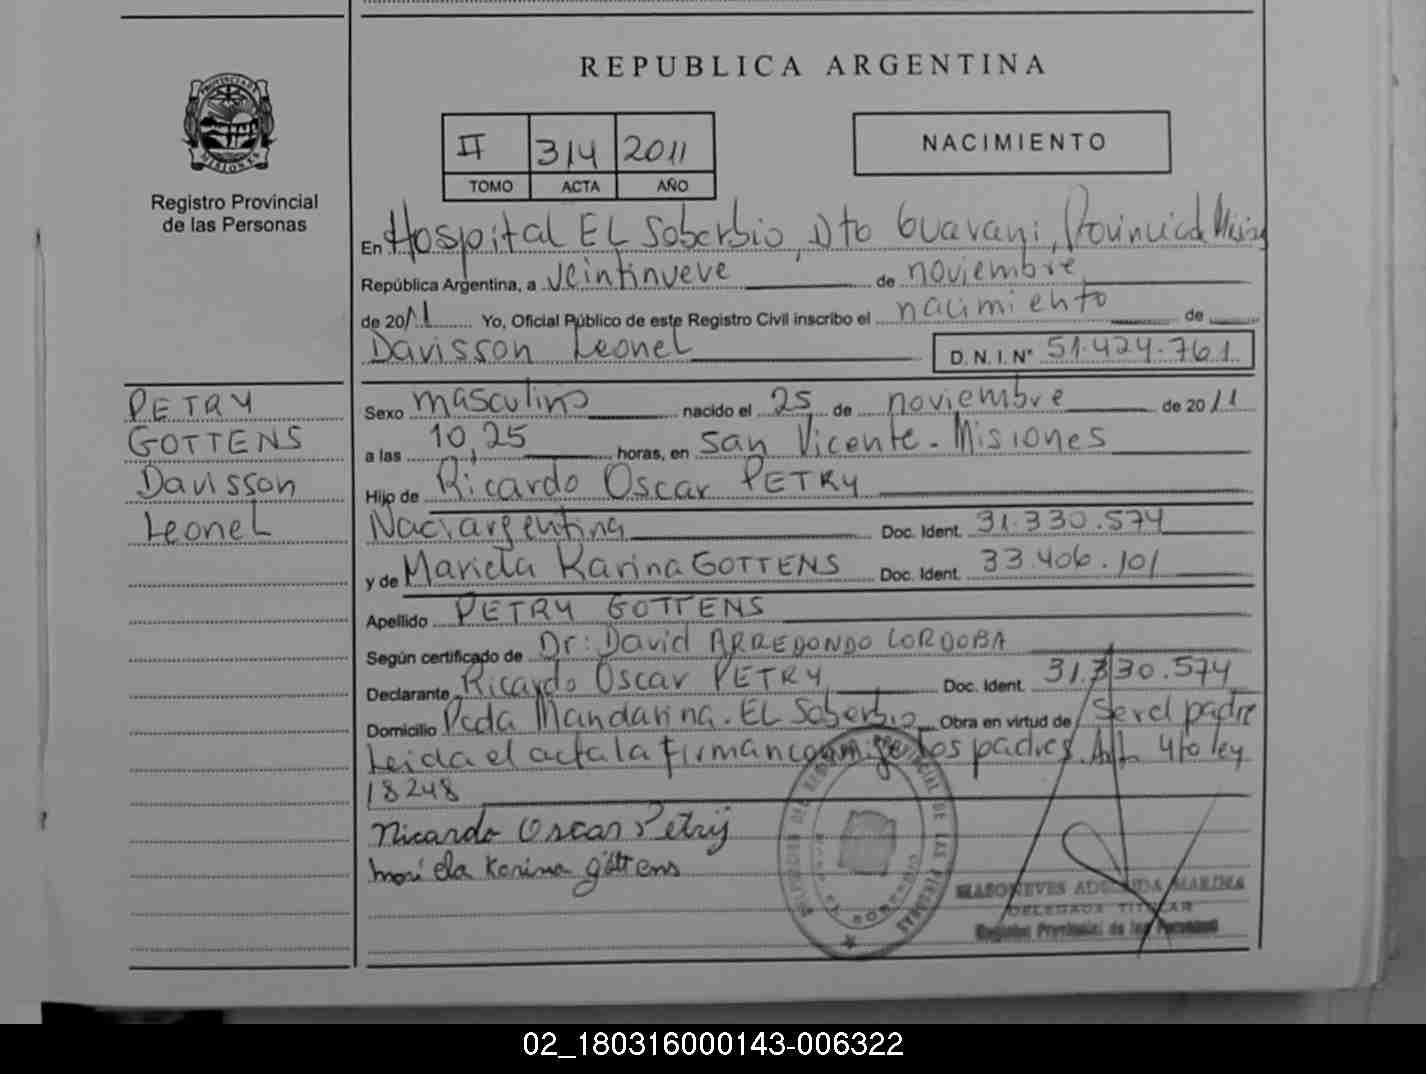 REPUBLICA ARGENTINA
PROVINCIA DE MISIONES
Registro Provincial
de las Personas
II 314 2011
TOMO ACTA AÑO
NACIMIENTO
En Hospital EL Soberbio, Dto Guarani, Provincia de Misiones
República Argentina, a veintinueve de noviembre
de 2011 Yo, Oficial Público de este Registro Civil inscribo el nacimiento de
Davisson Leonel D. N. I. N° 51.424.761
PETRY
GOTTENS
Davisson
Leonel
Sexo masculino nacido el 25 de noviembre de 2011
a las 10,25 horas, en San Vicente - Misiones
Hijo de Ricardo Oscar PETRY
Nac. argentina Doc. Ident. 31.330.574
y de Mariela Karina GOTTENS Doc. Ident. 33.406.101
Apellido PETRY GOTTENS
Según certificado de Dr: David ARREDONDO CORDOBA
Declarante Ricardo Oscar PETRY Doc. Ident. 31.330.574
Domicilio Pcda Mandarina. EL Soberbio Obra en virtud de Ser el padre
Leida el acta la firman conmigo los padres. Arto 4to ley
18248
Ricardo Oscar Petry
mariela Karina göttens
MASONEVES ADELAIDA MARINA
DELEGADA TITULAR
Registro Provincial de las Personas
02_180316000143-006322